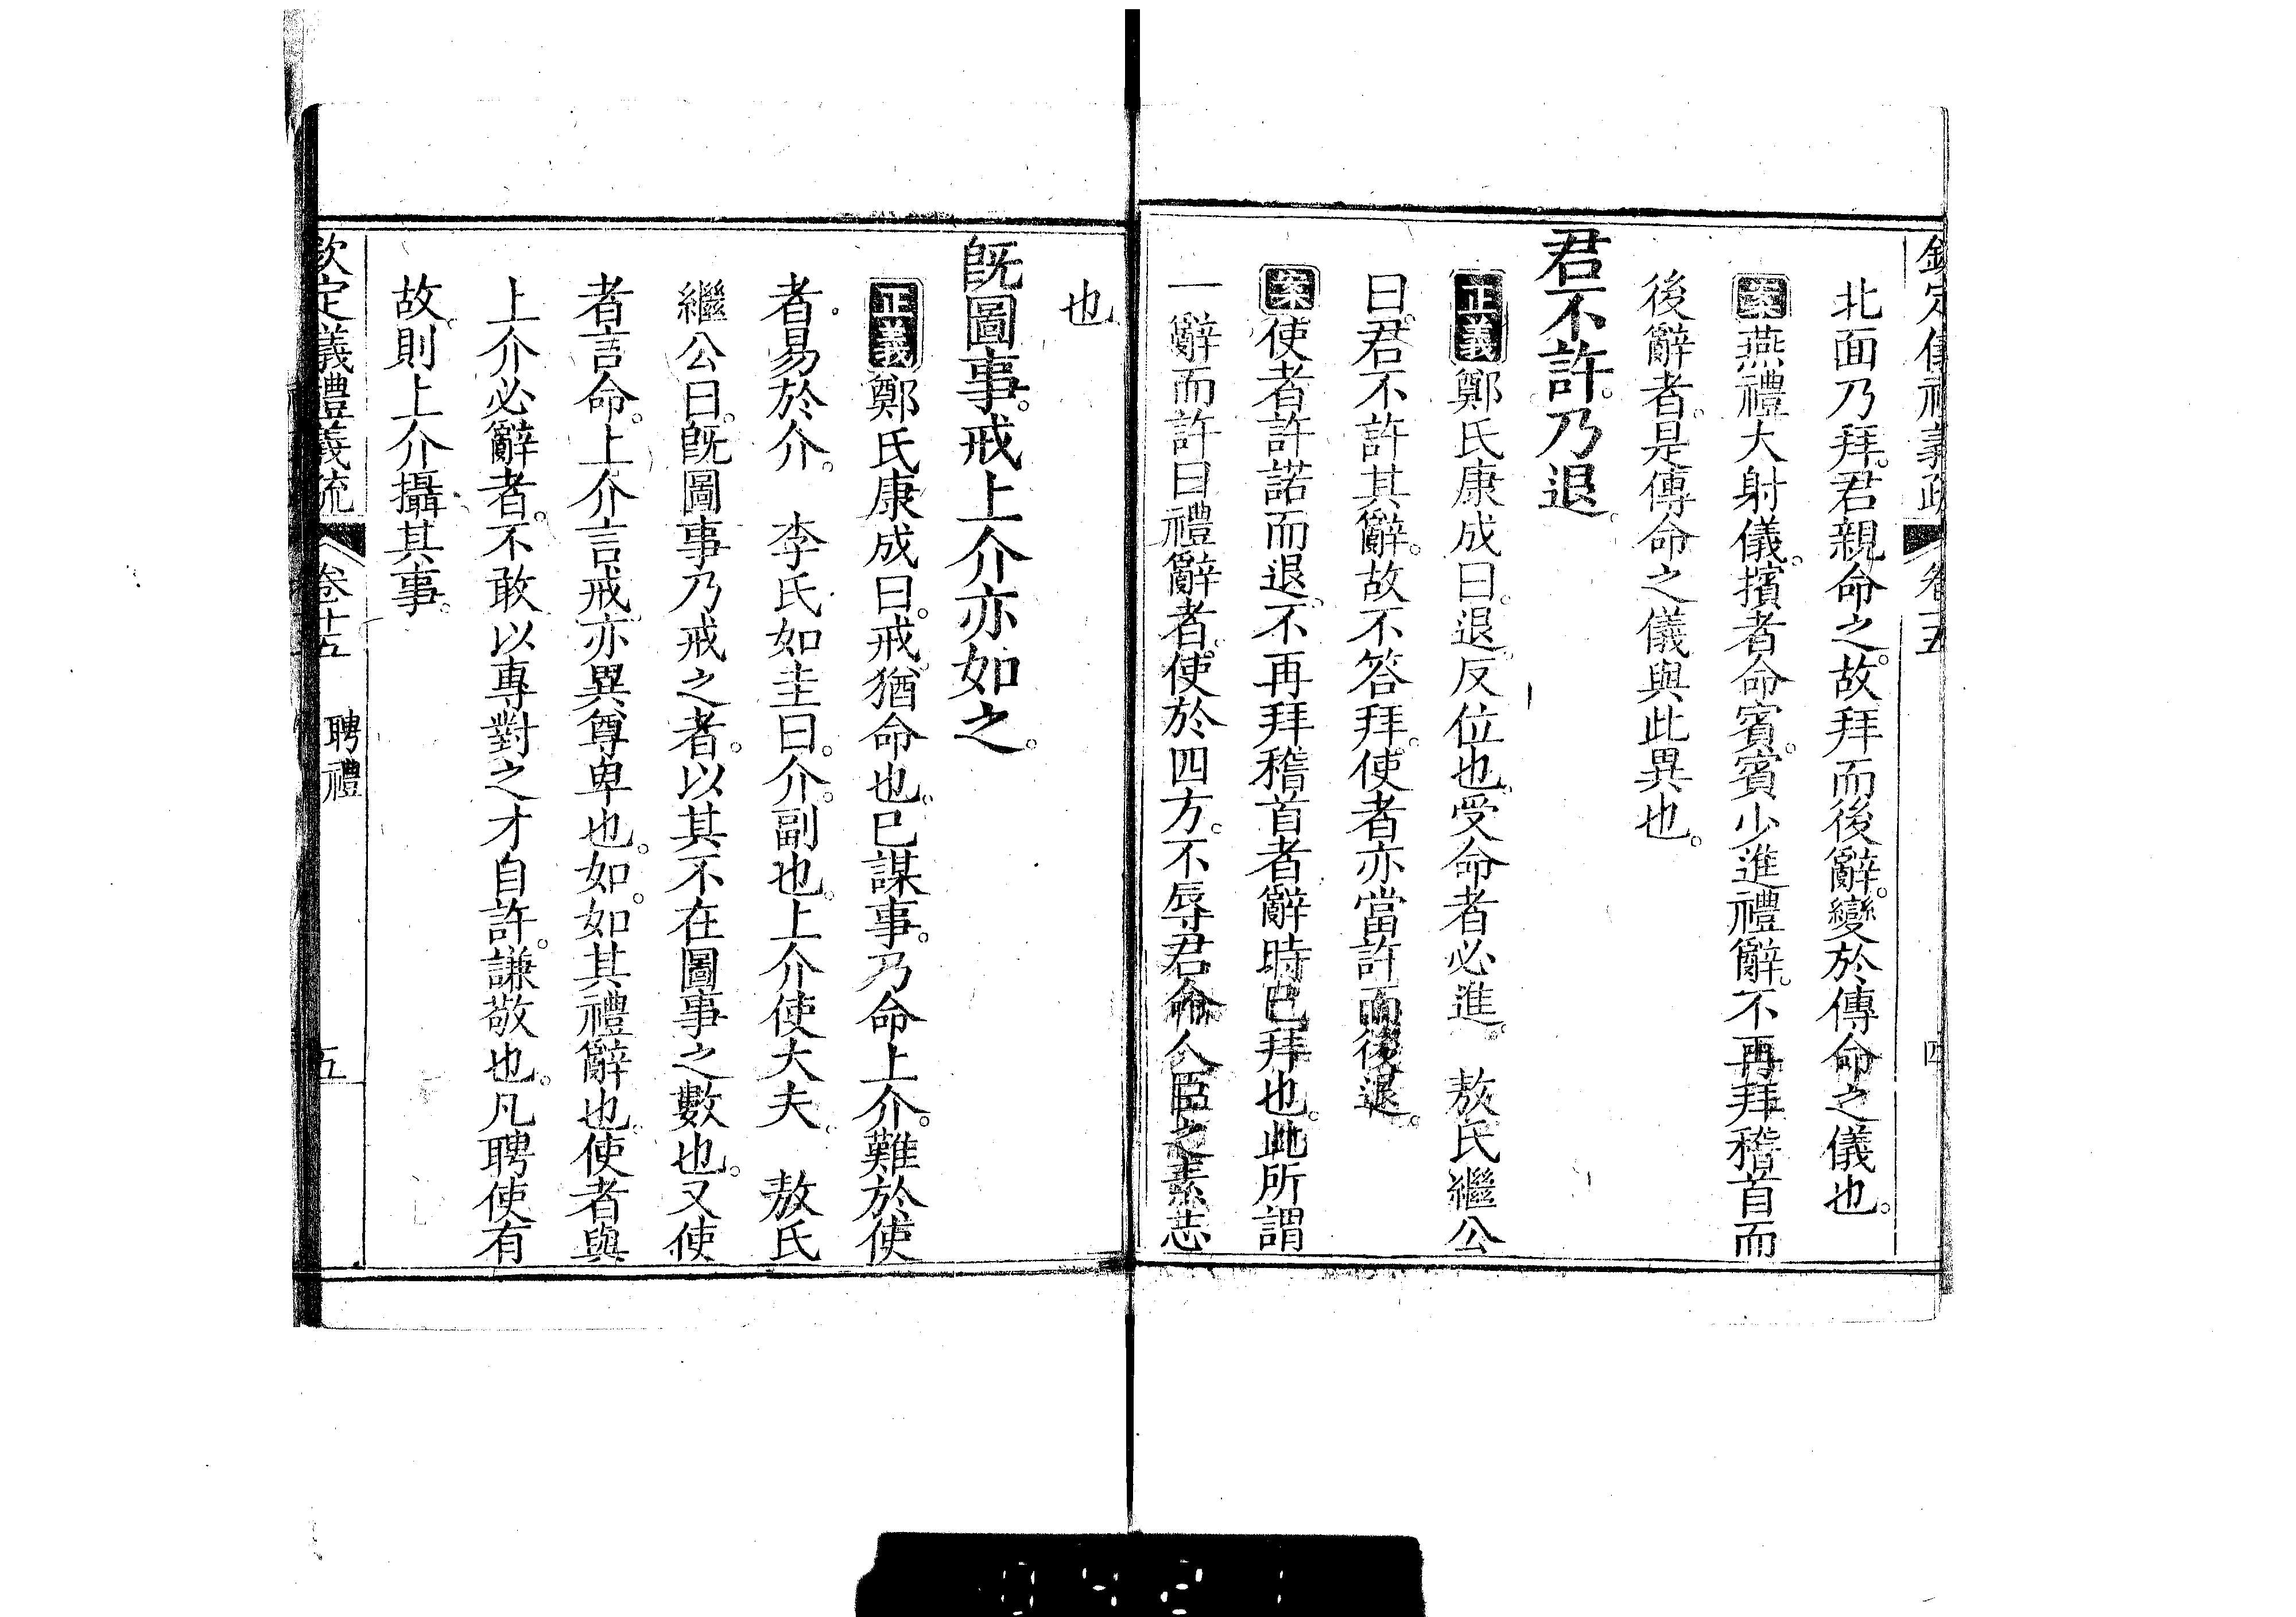 欽定儀禮義疏 卷十五 四
北面乃拜。君親命之。故拜而後辭。變於傳命之儀也。
案燕禮大射儀。擯者命賓。賓少進禮辭。不再拜稽首而
後辭者。是傳命之儀與此異也。
君不許。乃退。
正義鄭氏康成曰。退。反位也。受命者必進。 敖氏繼公
曰。君不許其辭。故不答拜。使者亦當許而後退。
案使者許諾而退。不再拜稽首者。辭時已拜也。此所謂
一辭而許曰禮辭者。使於四方。不辱君命。人臣之素志
也。
既圖事。戒上介亦如之。
正義鄭氏康成曰。戒猶命也。已謀事。乃命上介。難於使
者。易於介。 李氏如圭曰。介。副也。上介使大夫。 敖氏
繼公曰。既圖事乃戒之者。以其不在圖事之數也。又使
者言命。上介言戒。亦異尊卑也。如。如其禮辭也。使者與
上介必辭者。不敢以專對之才自許。謙敬也。凡聘使有
故。則上介攝其事。
欽定儀禮義疏 卷十五 聘禮 五
0421